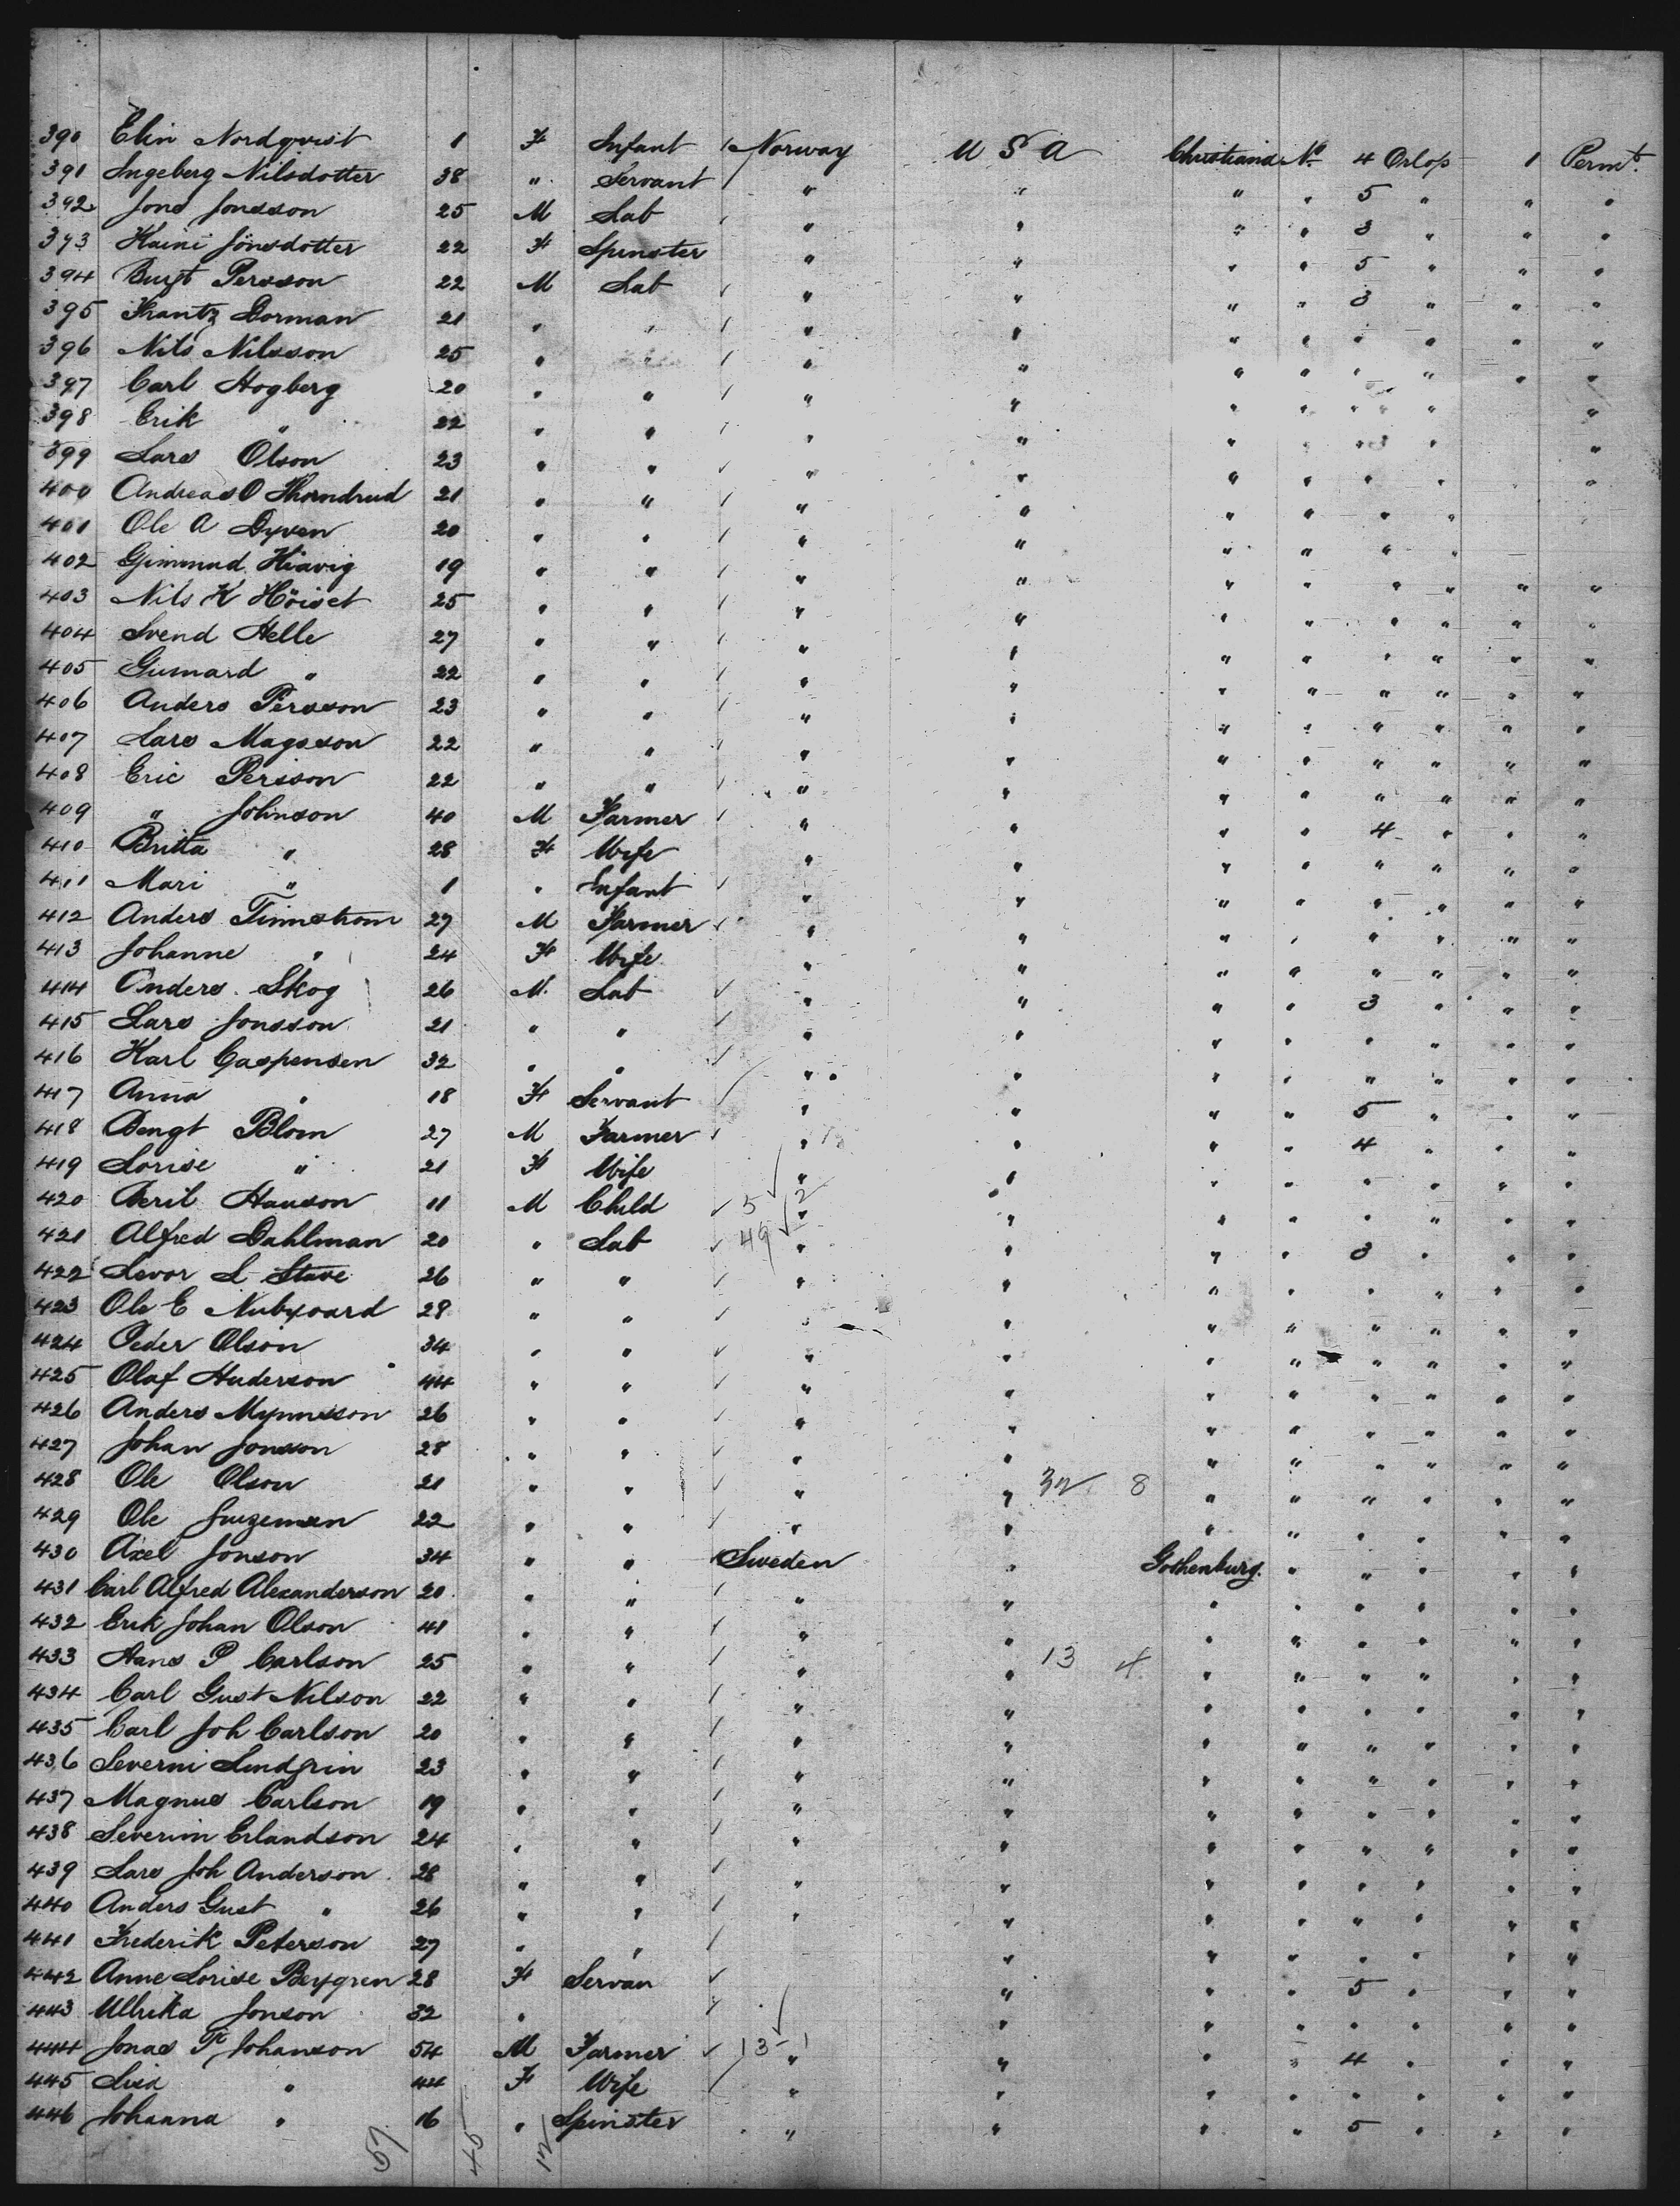 390 Elin Nordqvist 1 F Infant Norway U S A Christiania No 4 Orlop 1 Permt.
391 Ingeberg Nilsdotter 38 " Servant " " " " 5 " " "
392 Jons Jonsson 25 M Lab " " " " 3 " " "
393 Jönsdotter 22 F Spinster " " " " 5 " " "
394 Persson 22 M Lab " " " " 3 " " "
395 Frantz Dorman 21 " " " " " " " " " "
396 Nils Nilsson 25 " " " " " " " " "
397 Carl Hogberg 20 " " " " " " " " "
398 Erik " 22 " " " " " " 3 " "
399 Lars Olson 23 " " " " " " " " "
400 Andreas O Thorndrud 21 " " " " " " " "
401 Ole A Dyven 20 " " " " " " " "
402 Gimmund Hiavig 19 " " " " " " " " " "
403 Nils K Höiset 25 " " " " " " " " " "
404 Svend Helle 27 " " " " " " " " " "
405 Gumard " 22 " " " " " " " " " "
406 Anders Persson 23 " " " " " " " " " "
407 Lars Magsson 22 " " " " " " " " " "
408 Eric Persson 22 " " " " " " " " " "
409 " Johnson 40 M Farmer " " " " 4 " " "
410 Britta " 28 F Wife " " " " " " " "
411 Mari " 1 " Infant " " " " " " " "
412 Anders Tinnstrom 27 M Farmer " " " " " " " "
413 Johanne " 24 F Wife " " " " " " " "
414 Anders Skog 26 M Lab " " " " 3 " " "
415 Lars Jonsson 21 " " " " " " " " " "
416 Karl Caspensen 32 " " " " " " " " " "
417 Anna " 18 F Servant " " " " 5 " " "
418 Bengt Blom 27 M Farmer " " " " 4 " " "
419 Lovise " 21 F Wife " " " " " " " "
420 Beril Hanson 11 M Child 5 2 " " " " " " " "
421 Alfred Dahlman 20 " Lab 49 " " " " 3 " " "
422 Levor L Stave 26 " " " " " " " " " "
423 Ole E 28 " " " " " " " " " "
424 Peder Olson 34 " " " " " " " " " "
425 Olaf Huderson 44 " " " " " " " " " "
426 Anders Mynnsson 26 " " " " " " " " " "
427 Johan Jonsson 28 " " " " " " " " " "
428 Ole Olson 21 " " " " 32 8 " " " " " "
429 Ole 22 " " " " " " " " " "
430 Axel Jonson 34 " " Sweden " Gothenburg. " " " " "
431 Carl Alfred Alexanderson 20 " " " " " " " " " "
432 Erik Johan Olson 41 " " " " " " " " " "
433 Hans P Carlson 25 " " " " 13 4 " " " " " "
434 Carl Gust Nilson 22 " " " " " " " " " "
435 Carl Joh Carlson 20 " " " " " " " " " "
436 Severni Lindgrin 23 " " " " " " " " " "
437 Magnus Carlson 19 " " " " " " " " " "
438 Severin Erlandson 24 " " " " " " " " " "
439 Lars Joh Anderson 28 " " " " " " " " " "
440 Anders Gust " 26 " " " " " " " " " "
441 Frederik Peterson 27 " " " " " " " " "
442 Anne Lovise Bergren 28 F Servan " " " 5 " " "
443 Ullrika Jonson 32 " " " " " " " "
444 Jonas P Johanson 54 M Farmer 13 1 " " " " 4 " " "
445 Lisa " 44 F Wife " " " " " " " "
446 Johanna " 16 " Spinster " " " " 5 " " "
57 45 12